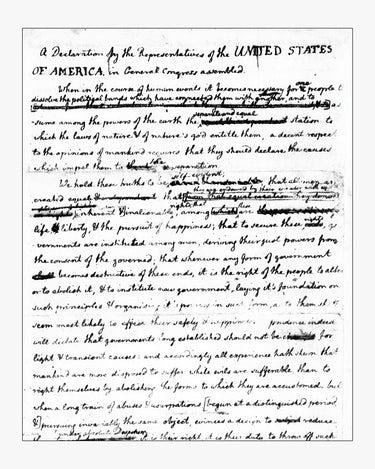 A Declaration by the Representatives of the UNITED STATES
OF AMERICA, in General Congress assembled.
When in the course of human events it becomes necessary for one people to
dissolve the political bands which have connected them with another, and to
as-
sume among the powers of the earth the separate and equal station to
which the laws of nature & of nature's god entitle them, a decent respect
to the opinions of mankind requires that they should declare the causes
which impel them to the separation.
We hold these truths to be self-evident, that all men are
created equal
inherent & inalienable, among are
life, liberty, & the pursuit of happiness; that to secure these rights, go-
vernments are instituted among men, deriving their just powers from
the consent of the governed; that whenever any form of government
becomes destructive of these ends, it is the right of the people to alter
or to abolish it, & to institute new government, laying it's foundation on
such principles & organising it's powers in such form, as to them shall
seem most likely to effect their safety & happiness. prudence indeed
will dictate that governments long established should not be changed for
light & transient causes: and accordingly all experience hath shewn that
mankind are more disposed to suffer while evils are sufferable, than to
right themselves by abolishing the forms to which they are accustomed. but
when a long train of abuses & usurpations [begun at a distinguished period,
&] pursuing invariably the same object, evinces a design to reduce
under absolute Despotism
it is their right, it is their duty, to throw off such